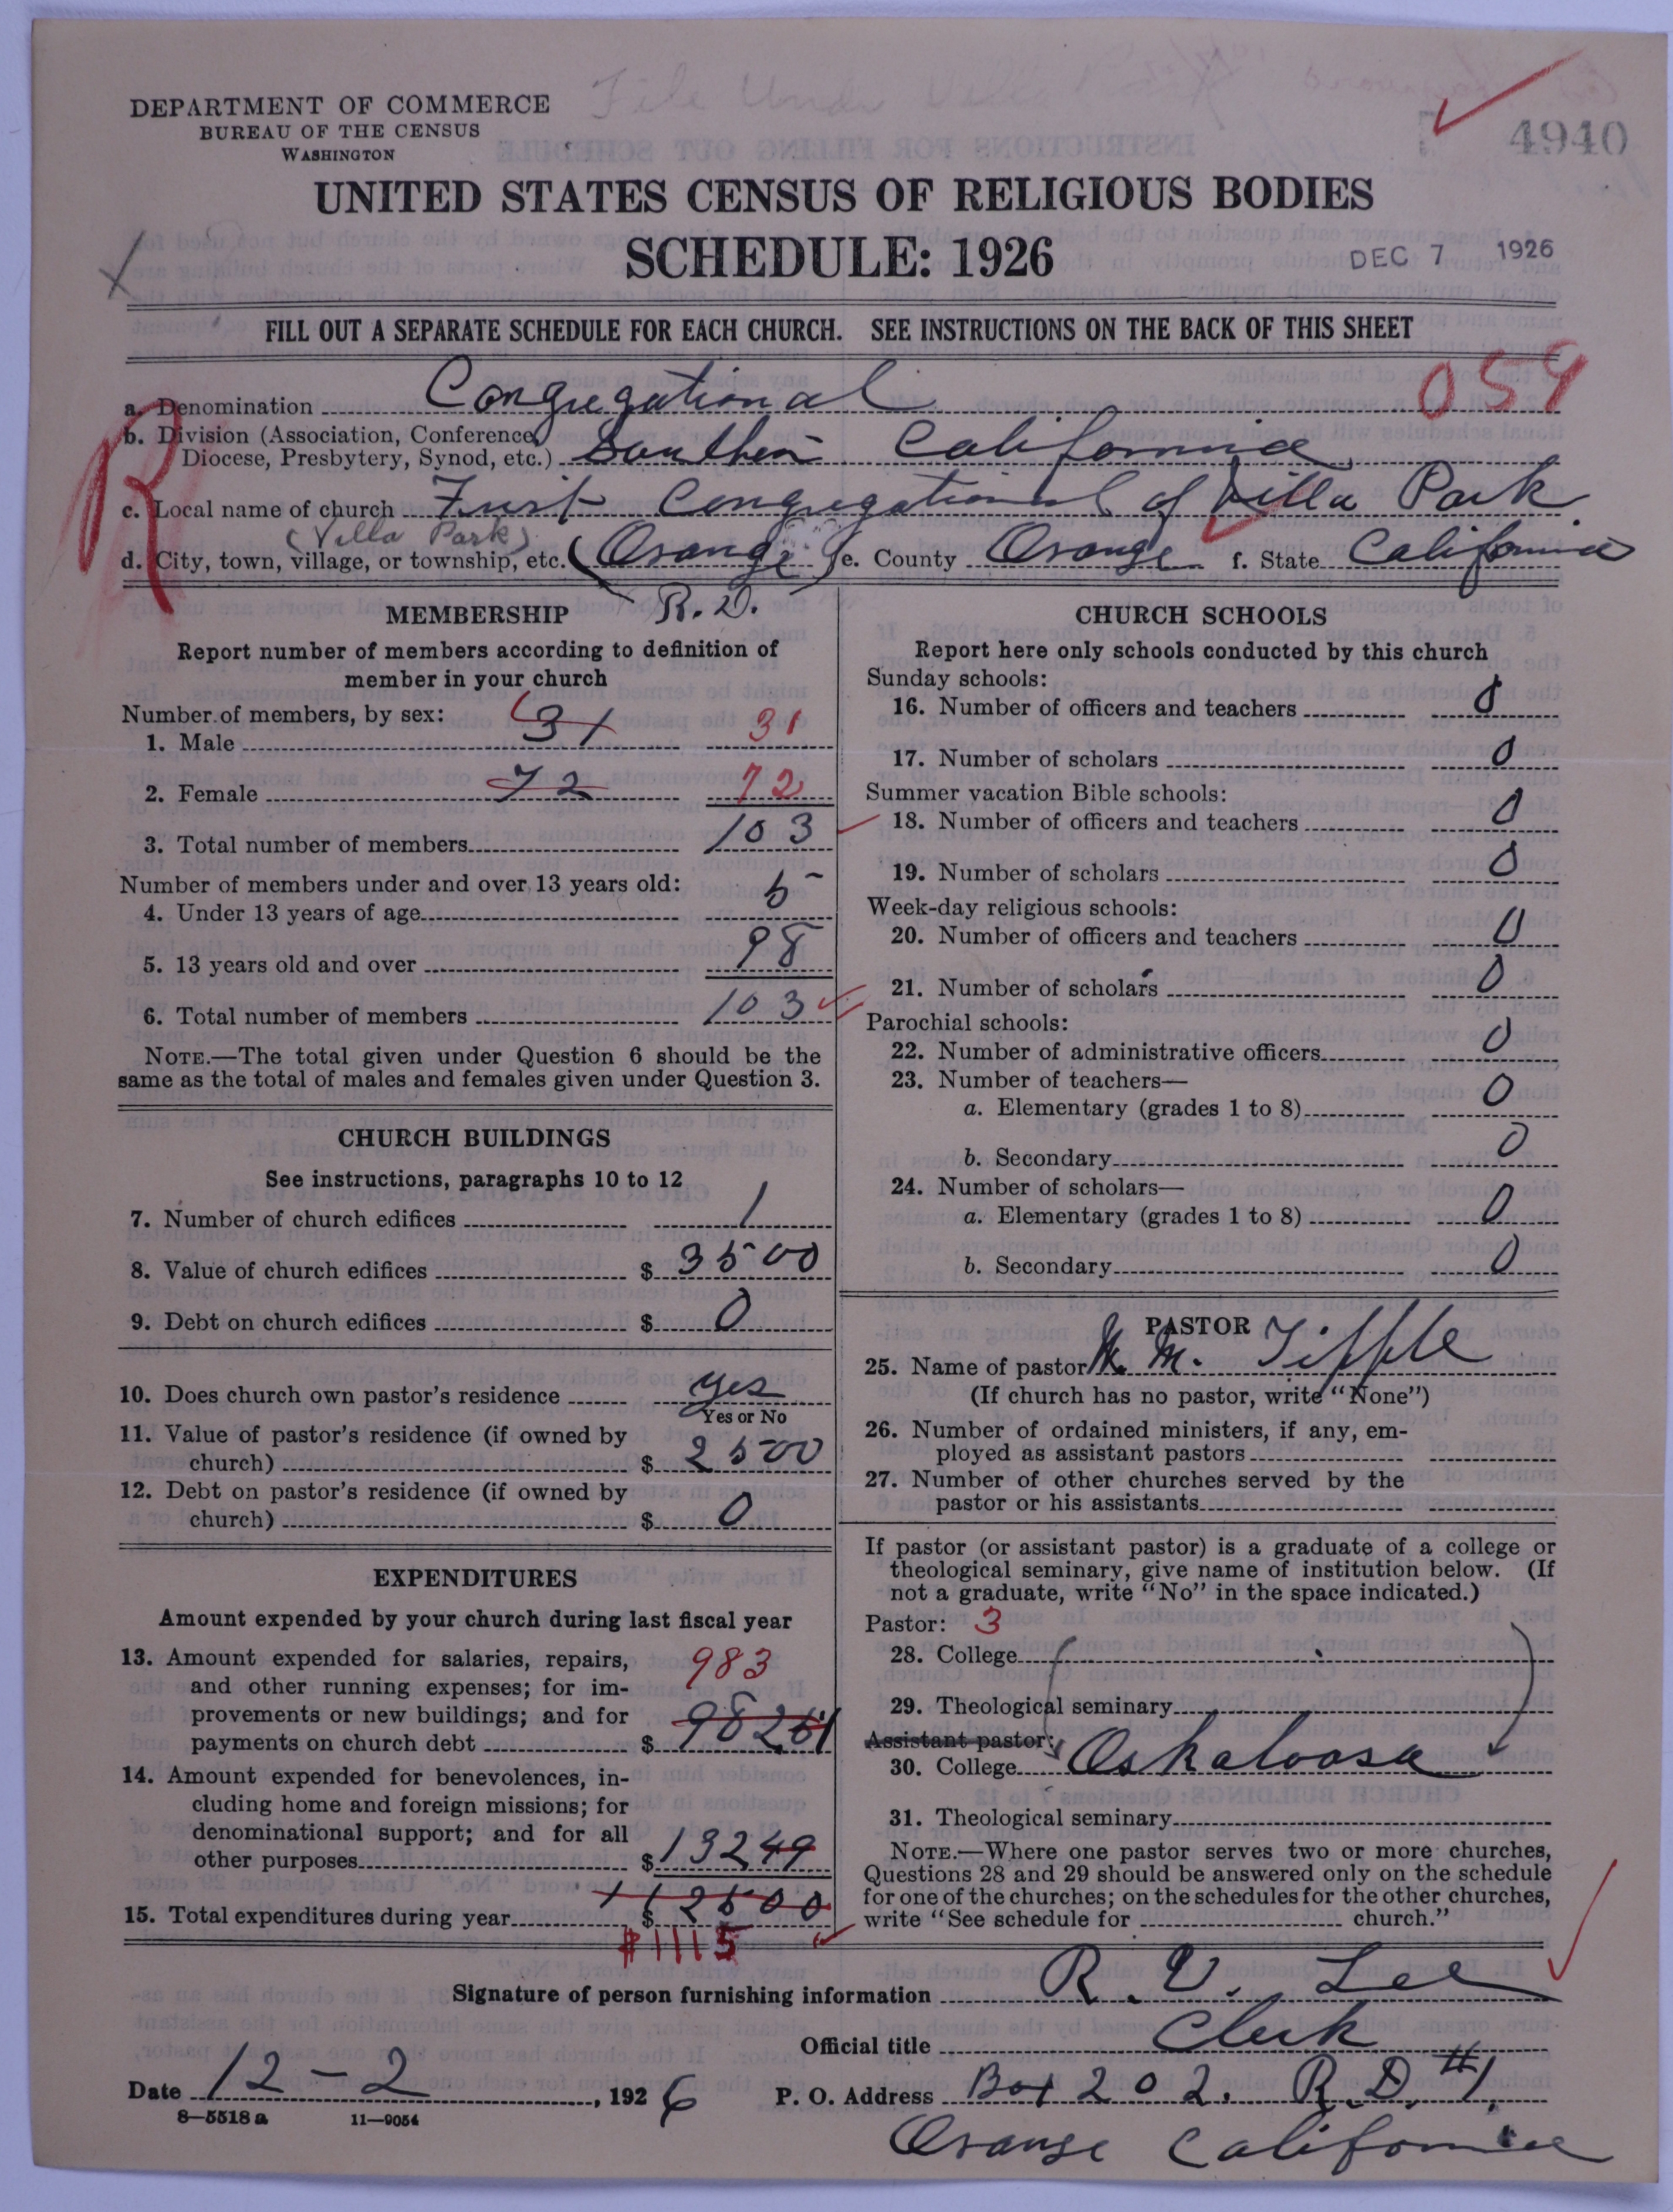 DEPARTMENT OF COMMERCE
BUREAU OF THE CENSUS
WASHINGTON
File Under
4940
UNITED STATES CENSUS OF RELIGIOUS BODIES
SCHEDULE: 1926
DEC 7 1926
FILL OUT A SEPARATE SCHEDULE FOR EACH CHURCH. SEE INSTRUCTIONS ON THE BACK OF THIS SHEET
a. Denomination Congregational 059
b. Division (Association, Conference, Diocese, Presbytery, Synod, etc.) Southern California
R
c. Local name of church First Congregational of Villa Park
(Villa Park)
d. City, town, village, or township, etc. (Orange) e. County Orange f. State California
R. D.
MEMBERSHIP
Report number of members according to definition of
member in your church
Number of members, by sex:
1. Male 31 31
2. Female 72 72
3. Total number of members 103
Number of members under and over 13 years old:
4. Under 13 years of age 5
5. 13 years old and over 98
6. Total number of members 103
NOTE.—The total given under Question 6 should be the
same as the total of males and females given under Question 3.
CHURCH BUILDINGS
See instructions, paragraphs 10 to 12
7. Number of church edifices 1
8. Value of church edifices $ 3500
9. Debt on church edifices $ 0
10. Does church own pastor's residence yes
Yes or No
11. Value of pastor's residence (if owned by
church) $ 2500
12. Debt on pastor's residence (if owned by
church) $ 0
EXPENDITURES
Amount expended by your church during last fiscal year
13. Amount expended for salaries, repairs, 983
and other running expenses; for im-
provements or new buildings; and for
payments on church debt $ 98251
14. Amount expended for benevolences, in-
cluding home and foreign missions; for
denominational support; and for all
other purposes $ 13249
15. Total expenditures during year $ 112500
$1115
CHURCH SCHOOLS
Report here only schools conducted by this church
Sunday schools:
16. Number of officers and teachers 0
17. Number of scholars 0
Summer vacation Bible schools:
18. Number of officers and teachers 0
19. Number of scholars 0
Week-day religious schools:
20. Number of officers and teachers 0
21. Number of scholars 0
Parochial schools:
22. Number of administrative officers 0
23. Number of teachers—
a. Elementary (grades 1 to 8) 0
b. Secondary 0
24. Number of scholars—
a. Elementary (grades 1 to 8) 0
b. Secondary 0
PASTOR
25. Name of pastor M. Tipple
(If church has no pastor, write "None")
26. Number of ordained ministers, if any, em-
ployed as assistant pastors
27. Number of other churches served by the
pastor or his assistants
If pastor (or assistant pastor) is a graduate of a college or
theological seminary, give name of institution below. (If
not a graduate, write "No" in the space indicated.)
Pastor: 3
28. College
29. Theological seminary
Assistant pastor:
30. College Oskaloosa
31. Theological seminary
NOTE.—Where one pastor serves two or more churches,
Questions 28 and 29 should be answered only on the schedule
for one of the churches; on the schedules for the other churches,
write "See schedule for church."
Signature of person furnishing information R. V. Lee
Official title Clerk
Date 12-2, 1926 P. O. Address Box 202. R. D. #1.
8—5518 a 11—9054
Orange California